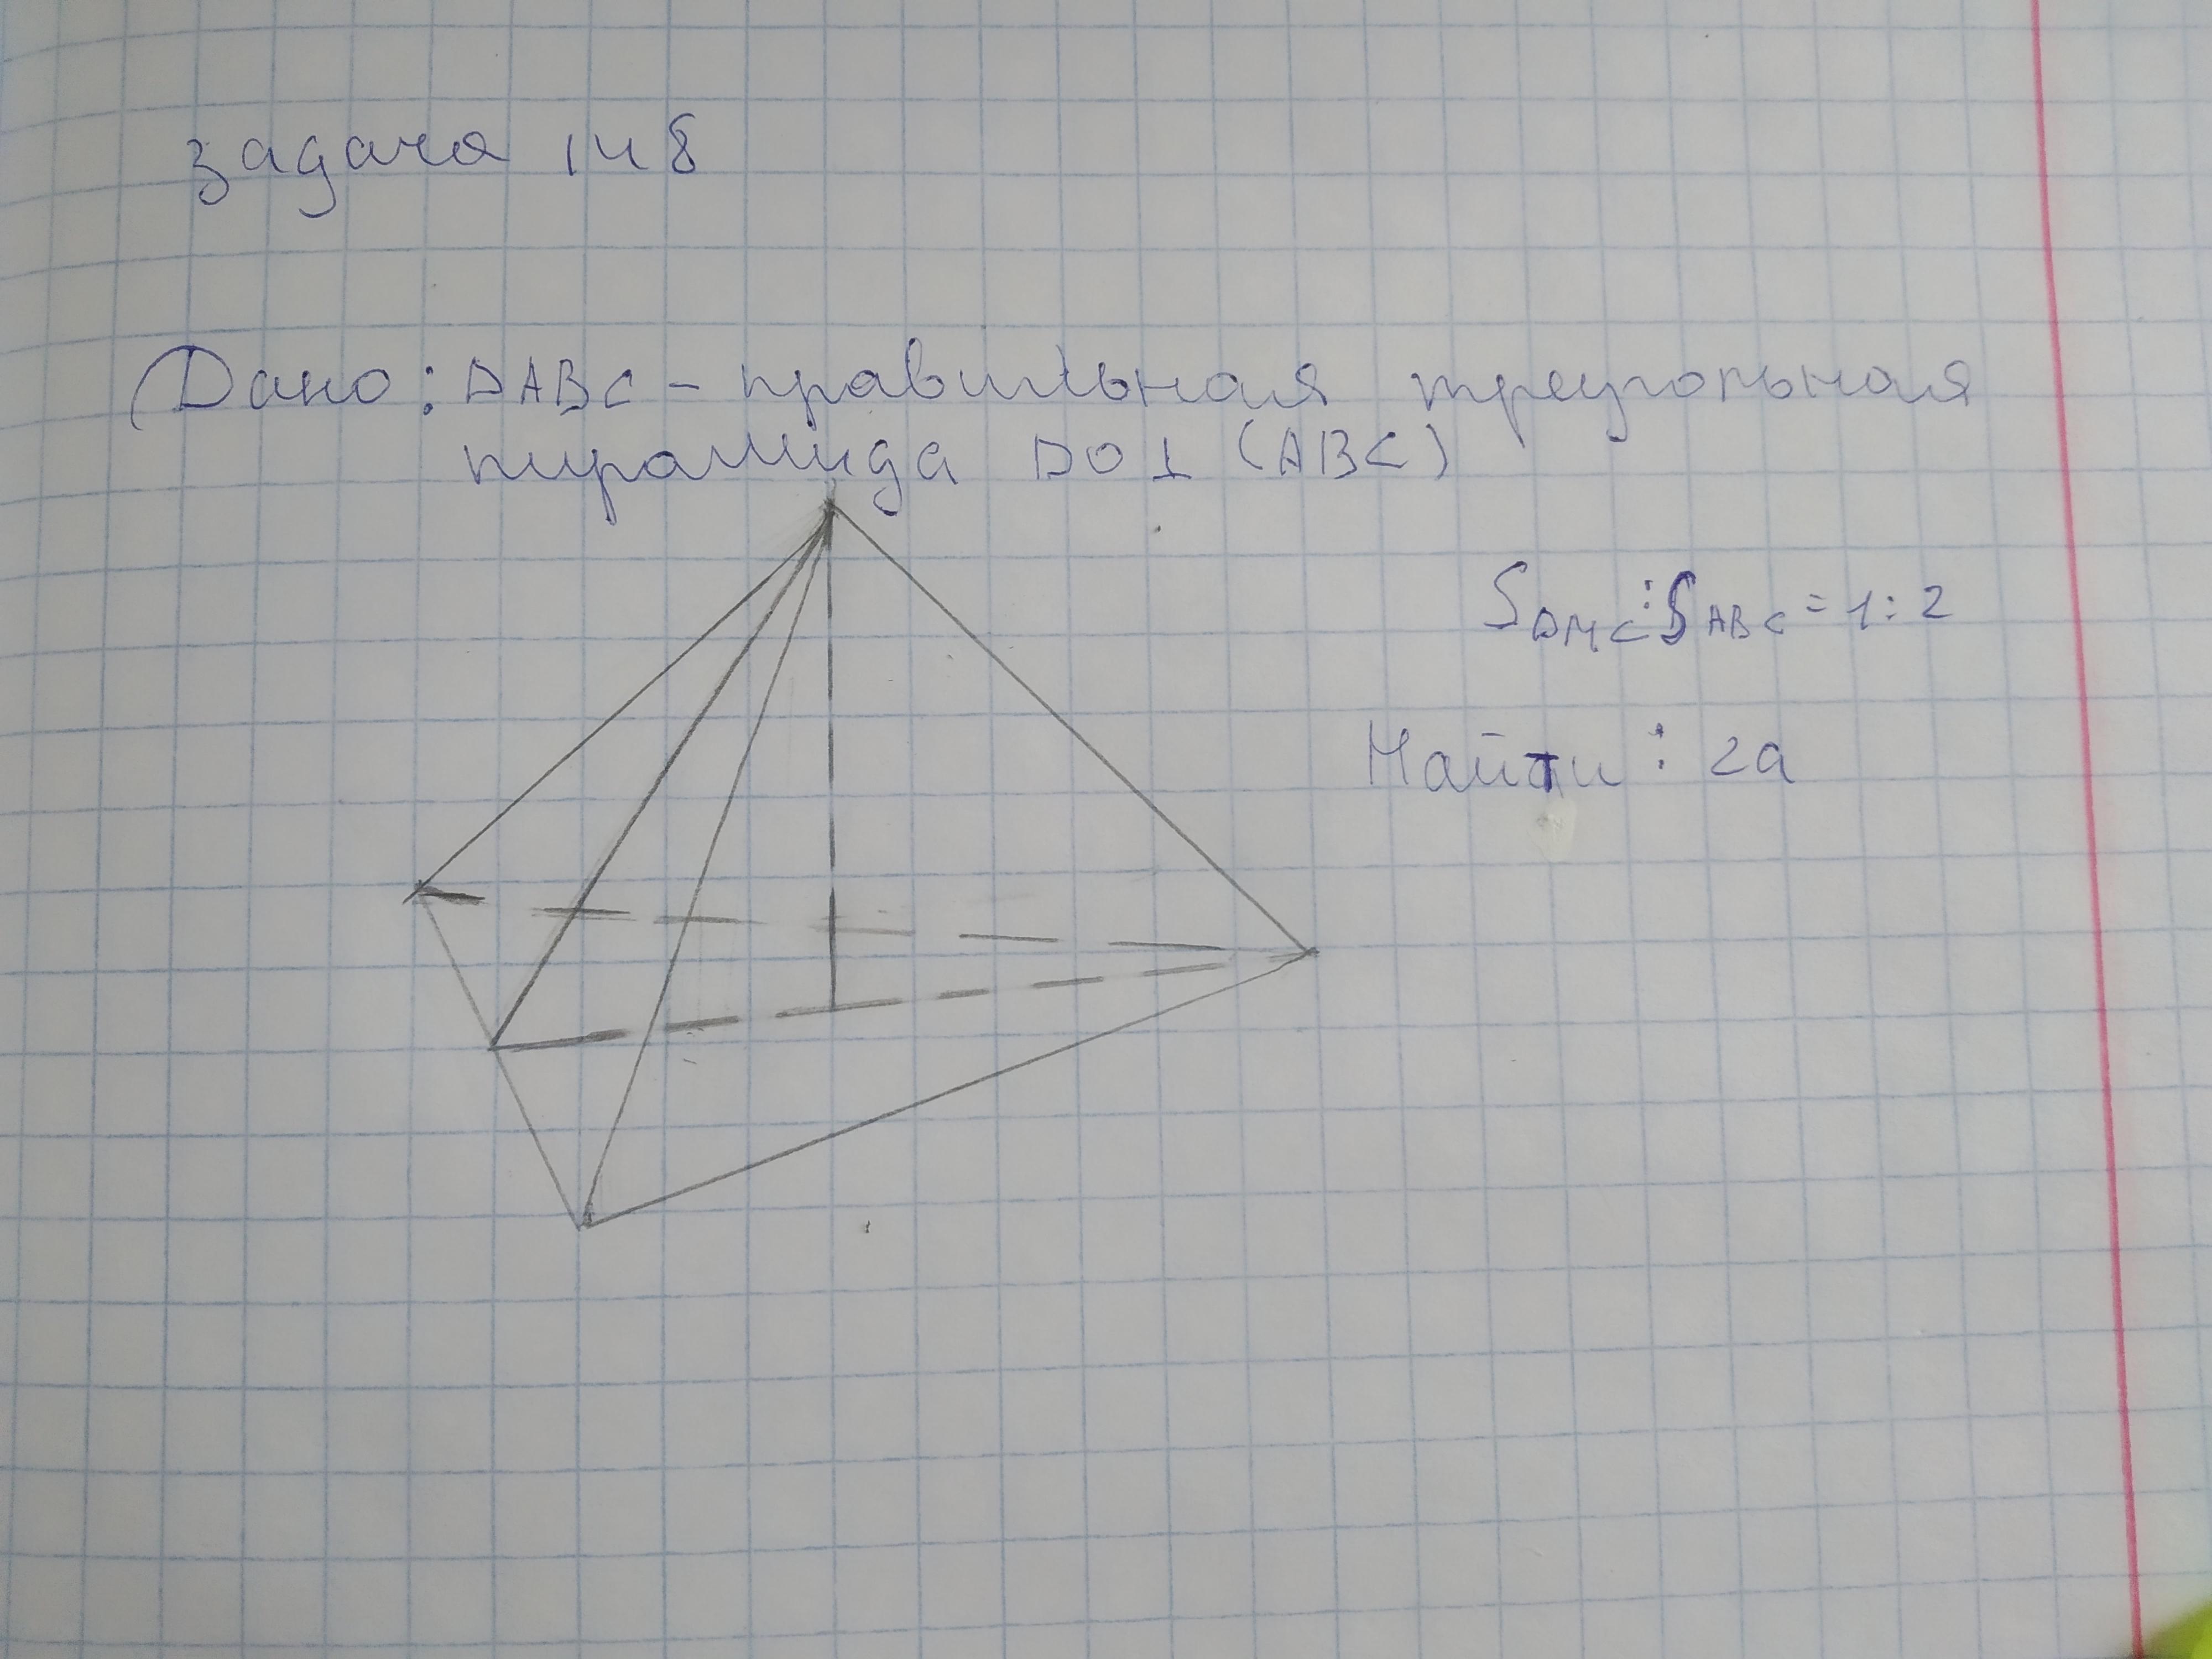 задача 148
Дано: DABC - правильная треугольная
пирамида DO⊥(ABC)
S DMC : S ABC = 1:2
Найти: 2a